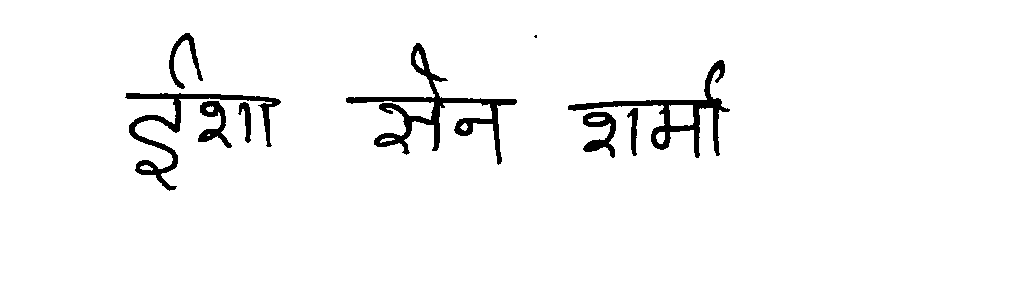 ईशा सेन शर्मा